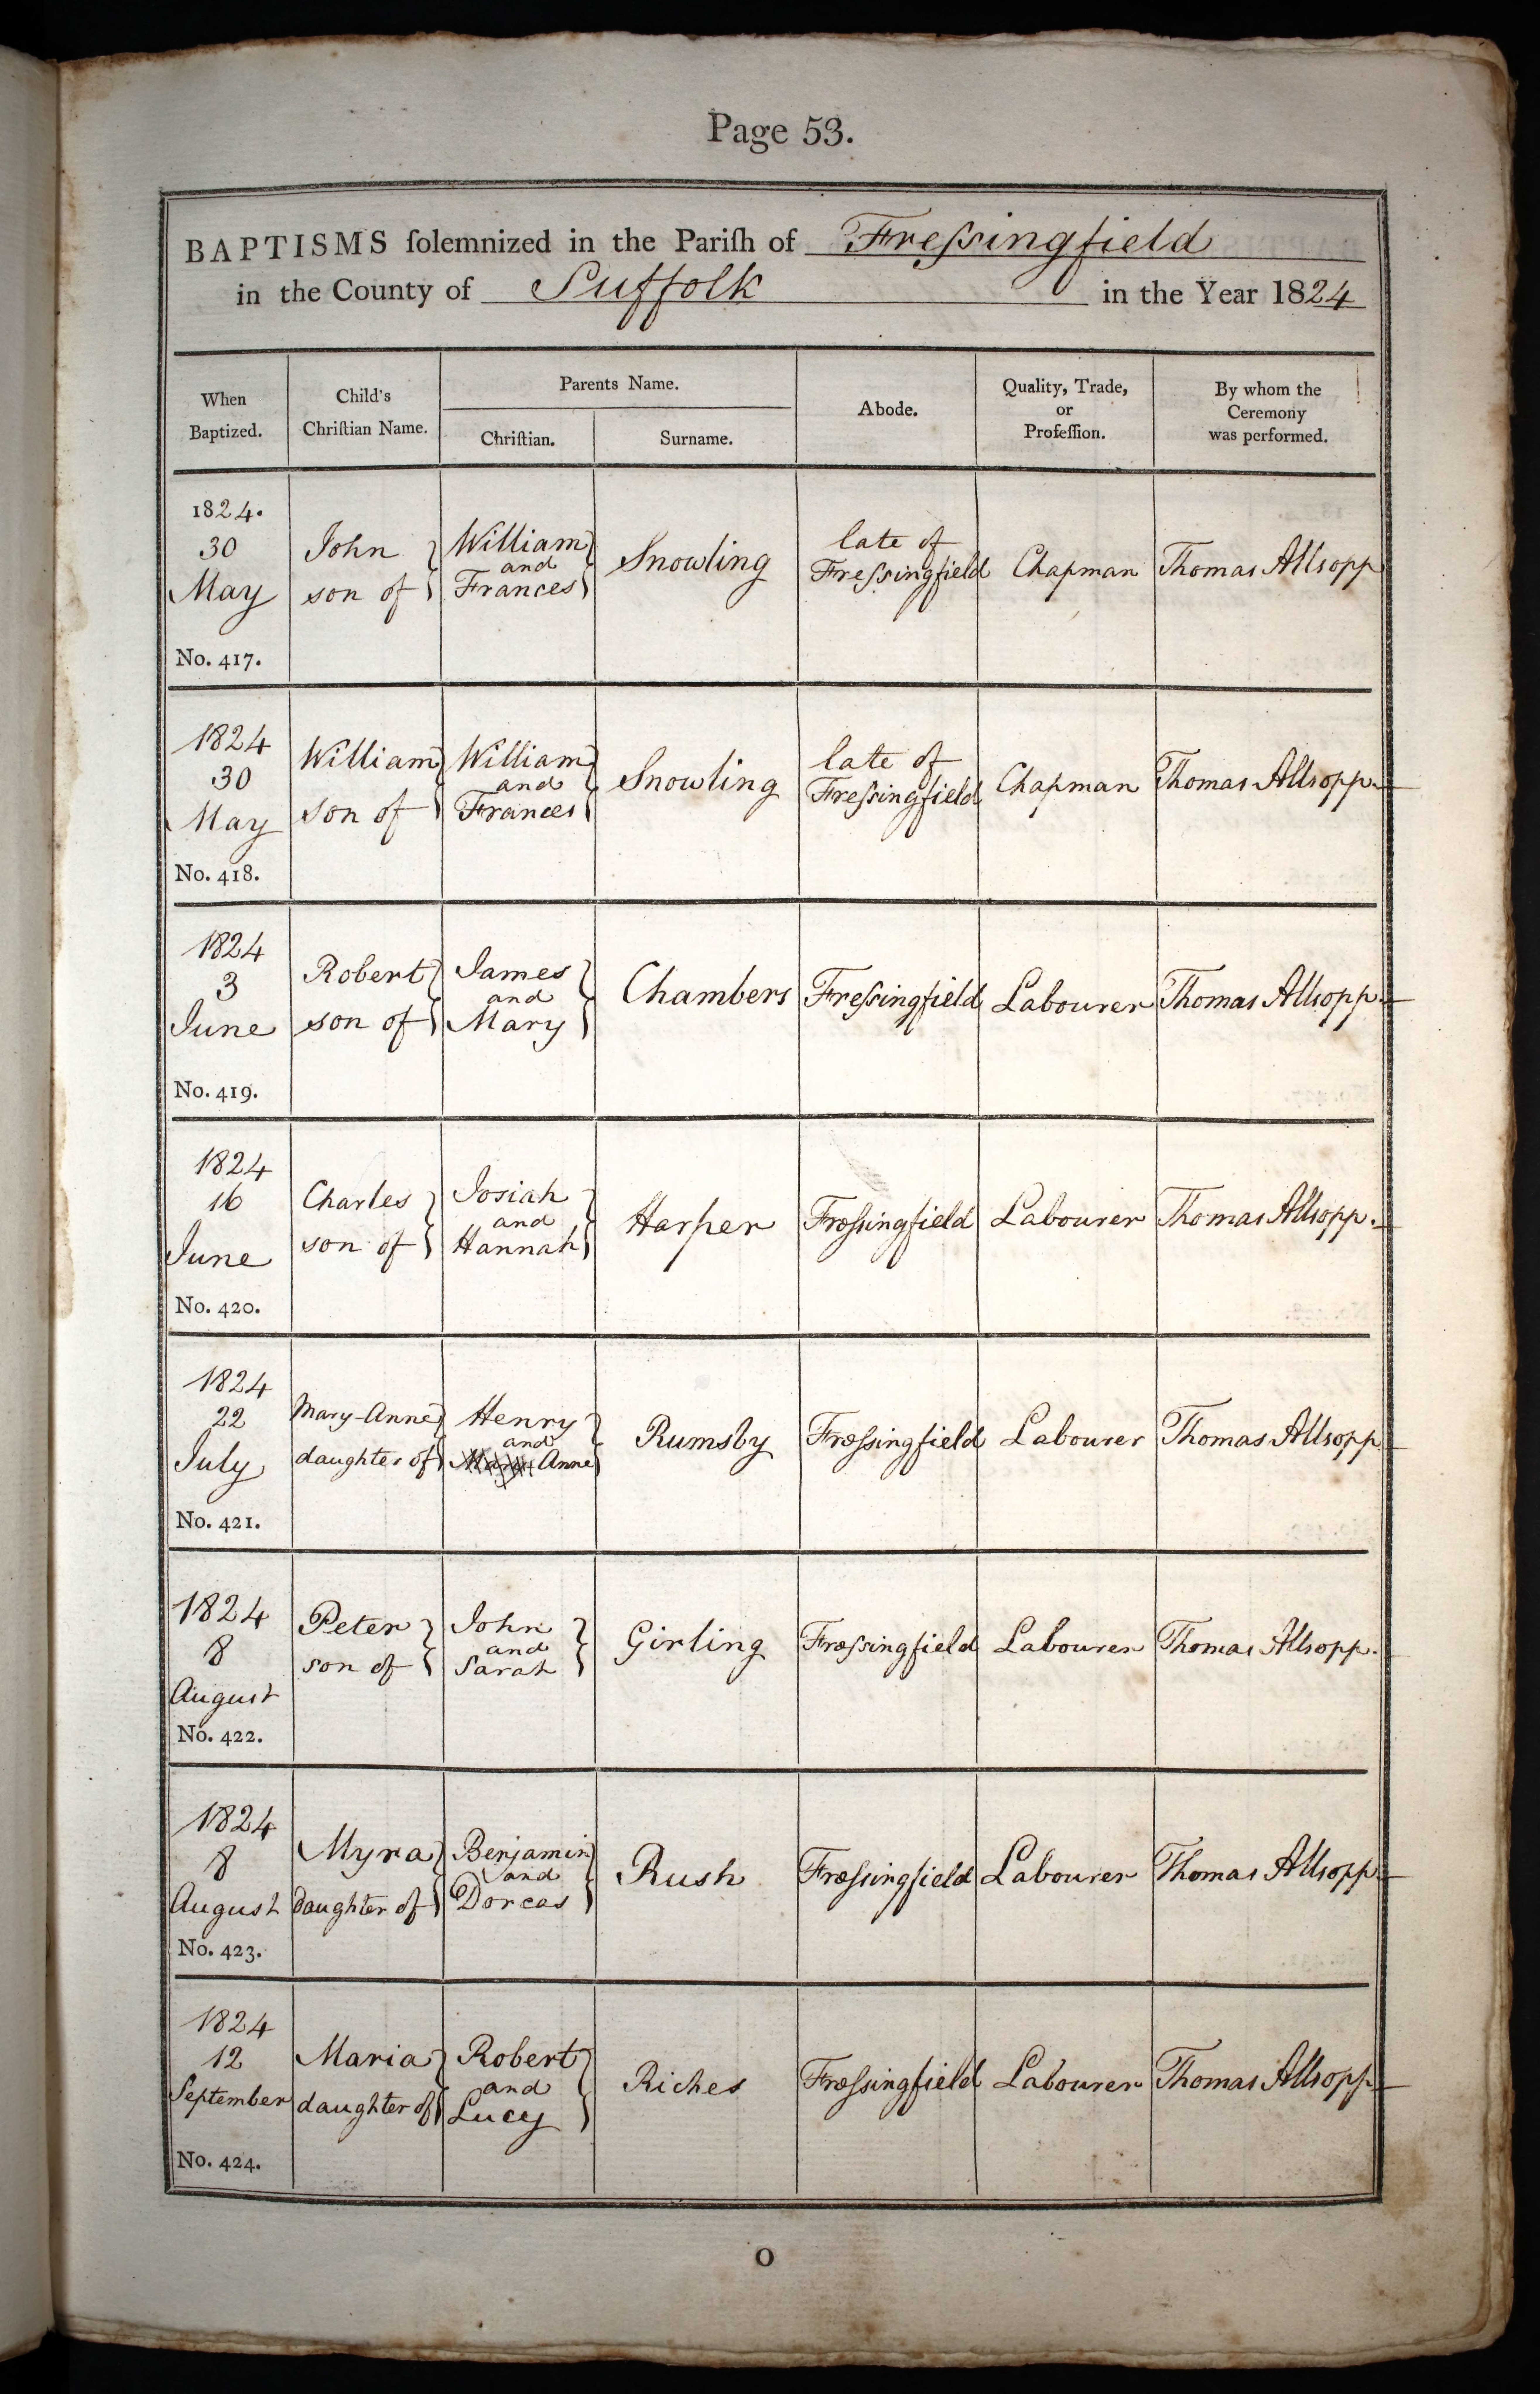 Page 53.
BAPTISMS ſolemnized in the Pariſh of Freſsingfield
in the County of Suffolk in the Year 1824
When Baptized.
Child's Chriſtian Name.
Parents Name.
Chriſtian.
Surname.
Abode.
Quality, Trade, or Profeſſion.
By whom the Ceremony was performed.
1824.
30
May
No. 417.
John
son of
William
and
Frances
Snowling
late of
Freſsingfield
Chapman
Thomas Allsopp
1824
30
May
No. 418.
William
son of
William
and
Frances
Snowling
late of
Freſsingfield
Chapman
Thomas Allsopp.
1824
3
June
No. 419.
Robert
son of
James
and
Mary
Chambers
Freſsingfield
Labourer
Thomas Allsopp.
1824
16
June
No. 420.
Charles
son of
Josiah
and
Hannah
Harper
Freſsingfield
Labourer
Thomas Allsopp.
1824
22
July
No. 421.
Mary-Anne
daughter of
Henry
and
Anne
Rumsby
Freſsingfield
Labourer
Thomas Allsopp
1824
8
August
No. 422.
Peter
son of
John
and
Sarah
Girling
Freſsingfield
Labourer
Thomas Allsopp.
1824
8
August
No. 423.
Myra
Daughter of
Benjamin
and
Dorcas
Rush
Freſsingfield
Labourer
Thomas Allsopp.
1824
12
September
No. 424.
Maria
daughter of
Robert
and
Lucy
Riches
Freſsingfield
Labourer
Thomas Allsopp
O